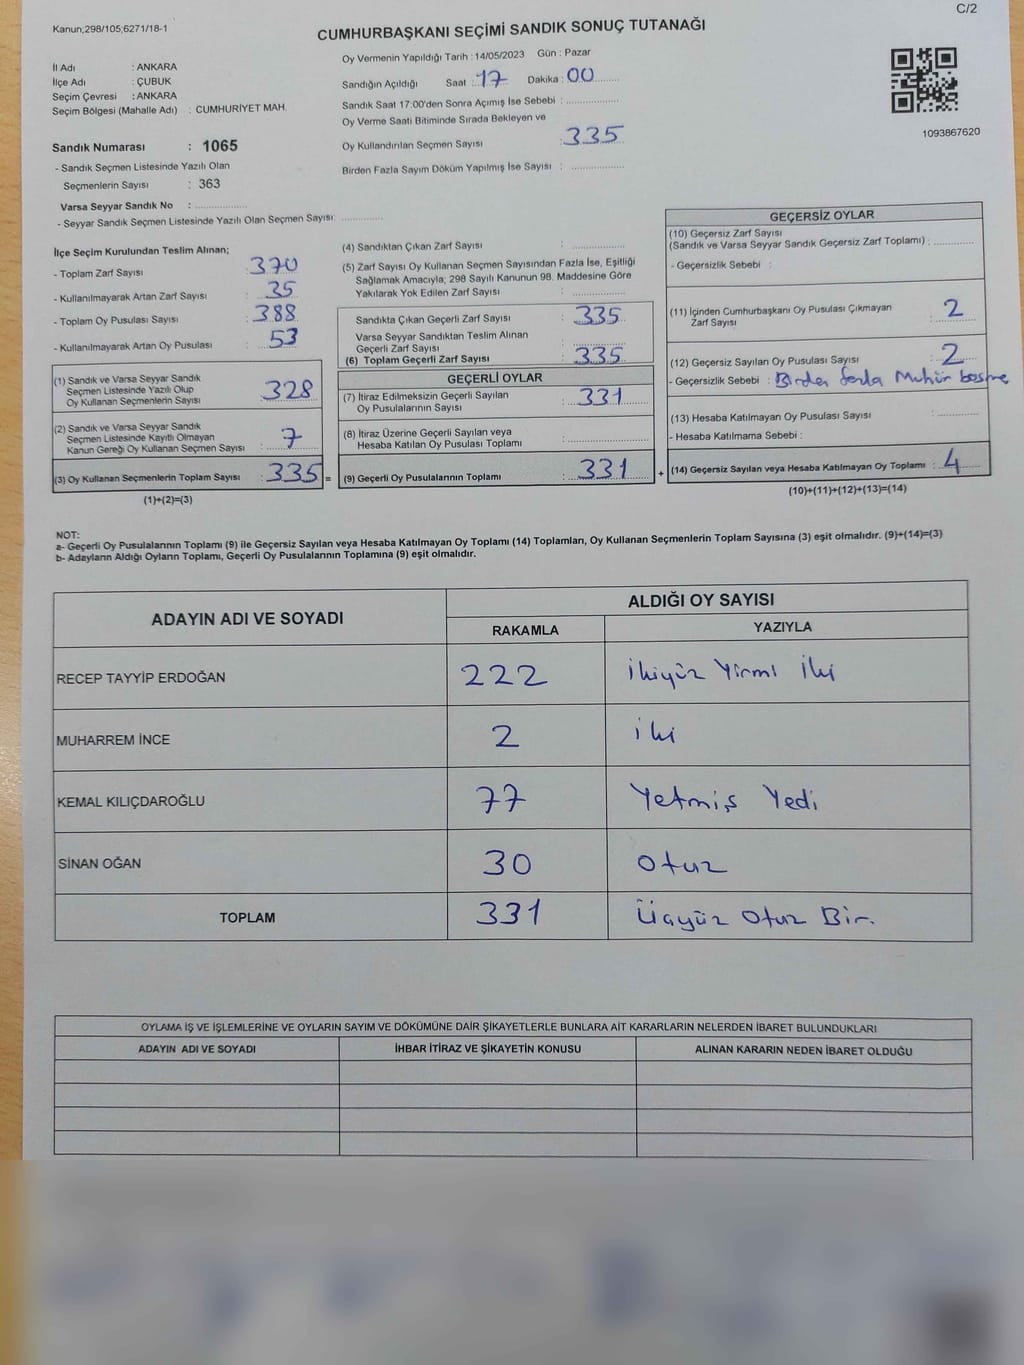 C/2
Kanun;298/105;6271/18-1
CUMHURBAŞKANI SEÇİMİ SANDIK SONUÇ TUTANAĞI
Oy Vermenin Yapıldığı Tarih : 14/05/2023 Gün : Pazar
İl Adı : ANKARA
İlçe Adı : ÇUBUK
Seçim Çevresi : ANKARA
Seçim Bölgesi (Mahalle Adı) : CUMHURİYET MAH.
Sandığın Açıldığı Saat : 17 Dakika : 00
Sandık Saat 17:00'den Sonra Açımış İse Sebebi :
Oy Verme Saati Bitiminde Sırada Bekleyen ve
Oy Kullandırılan Seçmen Sayısı : 335
Birden Fazla Sayım Döküm Yapılmış İse Sayısı :
1093867620
Sandık Numarası : 1065
- Sandık Seçmen Listesinde Yazılı Olan
Seçmenlerin Sayısı : 363
Varsa Seyyar Sandık No :
- Seyyar Sandık Seçmen Listesinde Yazılı Olan Seçmen Sayısı:
İlçe Seçim Kurulundan Teslim Alınan;
- Toplam Zarf Sayısı : 370
- Kullanılmayarak Artan Zarf Sayısı : 35
- Toplam Oy Pusulası Sayısı : 388
- Kullanılmayarak Artan Oy Pusulası : 53
(1) Sandık ve Varsa Seyyar Sandık
Seçmen Listesinde Yazılı Olup
Oy Kullanan Seçmenlerin Sayısı : 328
(2) Sandık ve Varsa Seyyar Sandık
Seçmen Listesinde Kayıtlı Olmayan
Kanun Gereği Oy Kullanan Seçmen Sayısı : 7
(3) Oy Kullanan Seçmenlerin Toplam Sayısı : 335 =
(1)+(2)=(3)
(4) Sandıktan Çıkan Zarf Sayısı :
(5) Zarf Sayısı Oy Kullanan Seçmen Sayısından Fazla İse, Eşitliği
Sağlamak Amacıyla; 298 Sayılı Kanunun 98. Maddesine Göre
Yakılarak Yok Edilen Zarf Sayısı :
Sandıkta Çıkan Geçerli Zarf Sayısı : 335
Varsa Seyyar Sandıktan Teslim Alınan
Geçerli Zarf Sayısı :
(6) Toplam Geçerli Zarf Sayısı : 335
GEÇERLİ OYLAR
(7) İtiraz Edilmeksizin Geçerli Sayılan
Oy Pusulalarının Sayısı : 331
(8) İtiraz Üzerine Geçerli Sayılan veya
Hesaba Katılan Oy Pusulası Toplamı :
(9) Geçerli Oy Pusulalarının Toplamı : 331 +
GEÇERSİZ OYLAR
(10) Geçersiz Zarf Sayısı
(Sandık ve Varsa Seyyar Sandık Geçersiz Zarf Toplamı) :
- Geçersizlik Sebebi :
(11) İçinden Cumhurbaşkanı Oy Pusulası Çıkmayan
Zarf Sayısı : 2
(12) Geçersiz Sayılan Oy Pusulası Sayısı : 2
- Geçersizlik Sebebi : Birden fazla Mühür basme
(13) Hesaba Katılmayan Oy Pusulası Sayısı :
- Hesaba Katılmama Sebebi :
(14) Geçersiz Sayılan veya Hesaba Katılmayan Oy Toplamı : 4
(10)+(11)+(12)+(13)=(14)
NOT:
a- Geçerli Oy Pusulalarının Toplamı (9) ile Geçersiz Sayılan veya Hesaba Katılmayan Oy Toplamı (14) Toplamları, Oy Kullanan Seçmenlerin Toplam Sayısına (3) eşit olmalıdır. (9)+(14)=(3)
b- Adayların Aldığı Oyların Toplamı, Geçerli Oy Pusulalarının Toplamına (9) eşit olmalıdır.
ADAYIN ADI VE SOYADI
ALDIĞI OY SAYISI
RAKAMLA YAZIYLA
RECEP TAYYİP ERDOĞAN 222 İkiyüz Yirmi İki
MUHARREM İNCE 2 İki
KEMAL KILIÇDAROĞLU 77 Yetmiş Yedi
SİNAN OĞAN 30 Otuz
TOPLAM 331 Üçyüz Otuz Bir.
OYLAMA İŞ VE İŞLEMLERİNE VE OYLARIN SAYIM VE DÖKÜMÜNE DAİR ŞİKAYETLERLE BUNLARA AİT KARARLARIN NELERDEN İBARET BULUNDUKLARI
ADAYIN ADI VE SOYADI İHBAR İTİRAZ VE ŞİKAYETİN KONUSU ALINAN KARARIN NEDEN İBARET OLDUĞU